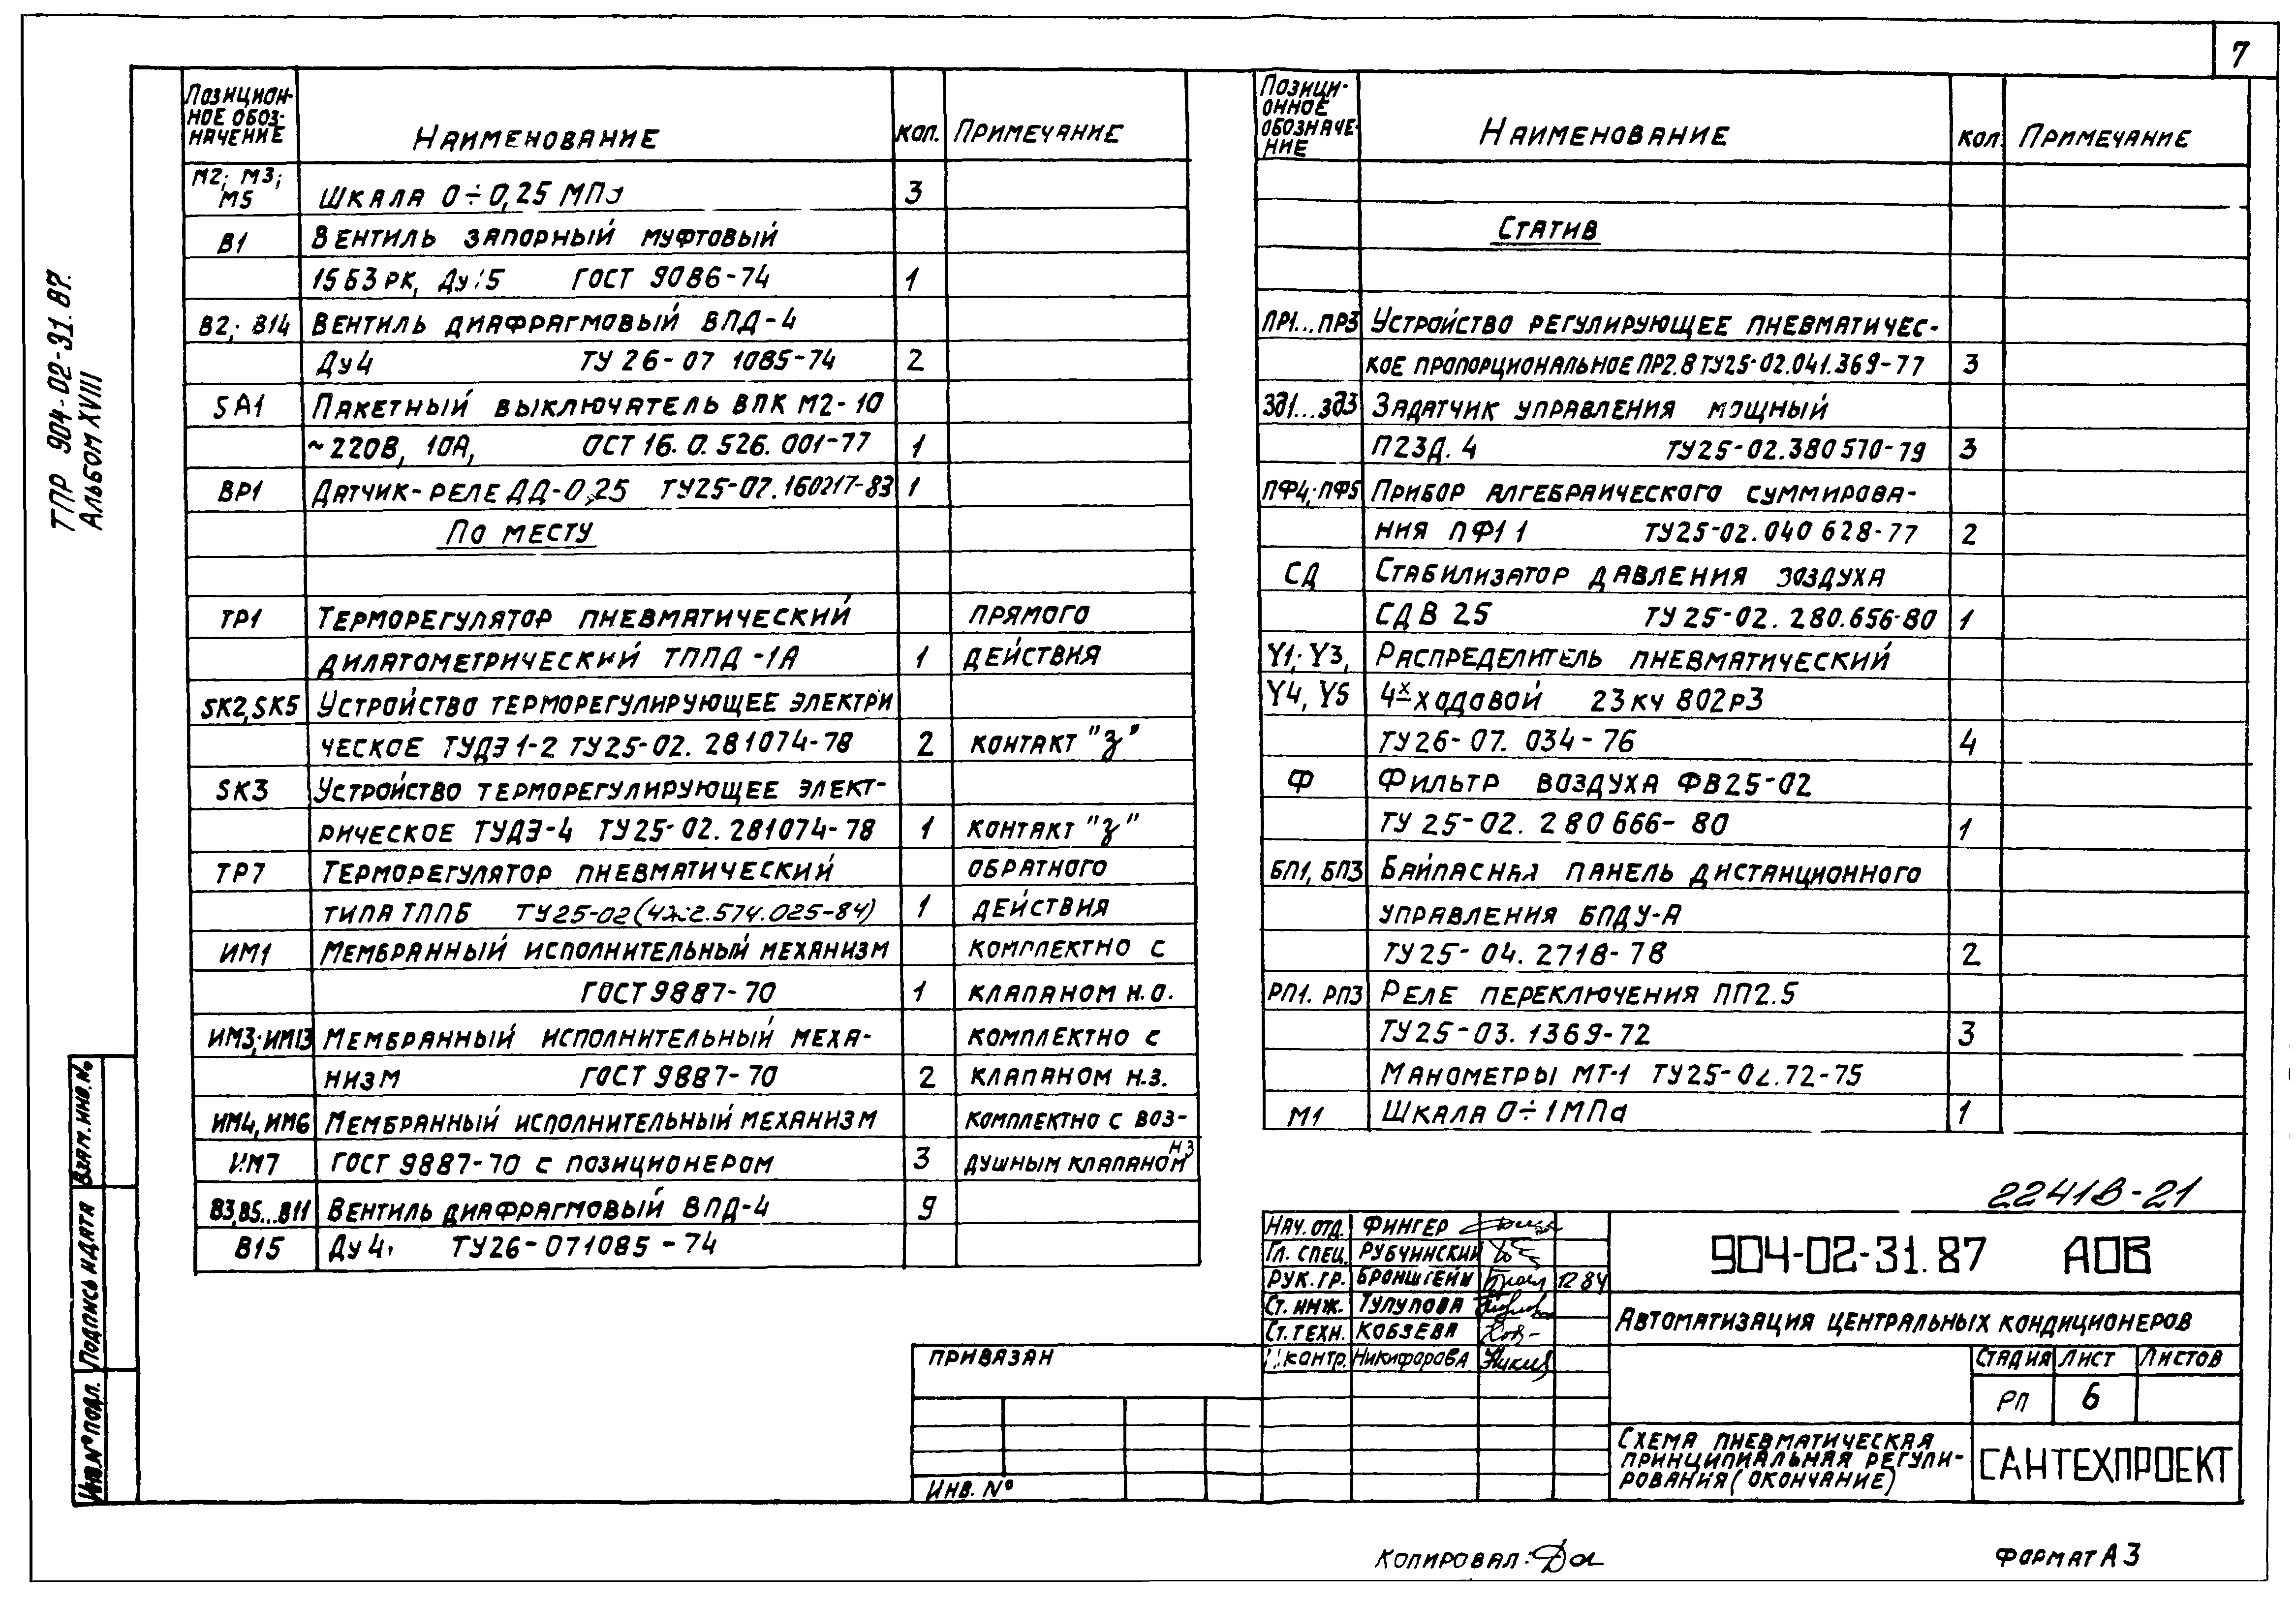 7
ТПР 904-02-31.87.
Альбом XVIII
Позицион-
ное обоз-
начение
Наименование
кол.
Примечание
М2; М3;
М5
Шкала 0÷0,25 МПа
3
В1
Вентиль запорный муфтовый
15Б3рк, Ду15 ГОСТ 9086-74
1
В2; В14
Вентиль диафрагмовый ВПД-4
Ду4 ТУ 26-07 1085-74
2
SA1
Пакетный выключатель ВПК М2-10
~220В, 10А, ОСТ 16.0.526.001-77
1
ВР1
Датчик-реле ДД-0,25 ТУ25-02.160217-83
1
По месту
ТР1
Терморегулятор пневматический
прямого
дилатометрический ТППД-1А
1
действия
SK2,SK5
Устройство терморегулирующее электри
ческое ТУДЭ1-2 ТУ25-02.281074-78
2
контакт "з"
SK3
Устройство терморегулирующее элект-
рическое ТУДЭ-4 ТУ25-02.281074-78
1
контакт "з"
ТР7
Терморегулятор пневматический
обратного
типа ТППБ ТУ25-02(4ж2.574.025-84)
1
действия
ИМ1
Мембранный исполнительный механизм
комплектно с
ГОСТ 9887-70
1
клапаном н.о.
ИМ3; ИМ13
Мембранный исполнительный меха-
комплектно с
низм ГОСТ 9887-70
2
клапаном н.з.
ИМ4, ИМ6
Мембранный исполнительный механизм
комплектно с воз-
ИМ7
ГОСТ 9887-70 с позиционером
3
душным клапаном нз
В3,В5...В11
Вентиль диафрагмовый ВПД-4
9
В15
Ду 4, ТУ26-071085-74
Позици-
онное
обозначе-
ние
Наименование
кол.
Примечание
Статив
ПР1...ПР3
Устройство регулирующее пневматичес-
кое пропорциональное ПР2.8 ТУ25-02.041.369-77
3
Зд1...Зд3
Задатчик управления мощный
П23Д.4 ТУ25-02.380570-79
3
ПФ4; ПФ5
Прибор алгебраического суммирова-
ния ПФ1 1 ТУ25-02.040628-77
2
СД
Стабилизатор давления воздуха
СДВ 25 ТУ25-02.280.656-80
1
Y1; Y3,
Распределитель пневматический
Y4, Y5
4х ходовой 23кч 802р3
ТУ26-07.034-76
4
Ф
Фильтр воздуха ФВ25-02
ТУ 25-02.280666-80
1
БП1, БП3
Байпасная панель дистанционного
управления БПДУ-А
ТУ25-04.2718-78
2
РП1. РП3
Реле переключения ПП2.5
ТУ25-03.1369-72
3
Манометры МТ-1 ТУ25-02.72-75
М1
Шкала 0÷1МПа
1
22418-21
Нач. отд. Фингер
Гл. спец. Рубчинский
Рук. гр. Бронштейн 12 84
Ст. инж. Тулупова
Ст. техн. Кобзева
Н контр. Никифорова
904-02-31.87 АОВ
Автоматизация центральных кондиционеров
Стадия Лист Листов
РП 6
Схема пневматическая
принципиальная регули-
рования (окончание)
САНТЕХПРОЕКТ
Привязан
Инв. №
Взам. инв. №
Подпись и дата
Инв. № подл.
Копировал:
Формат А3